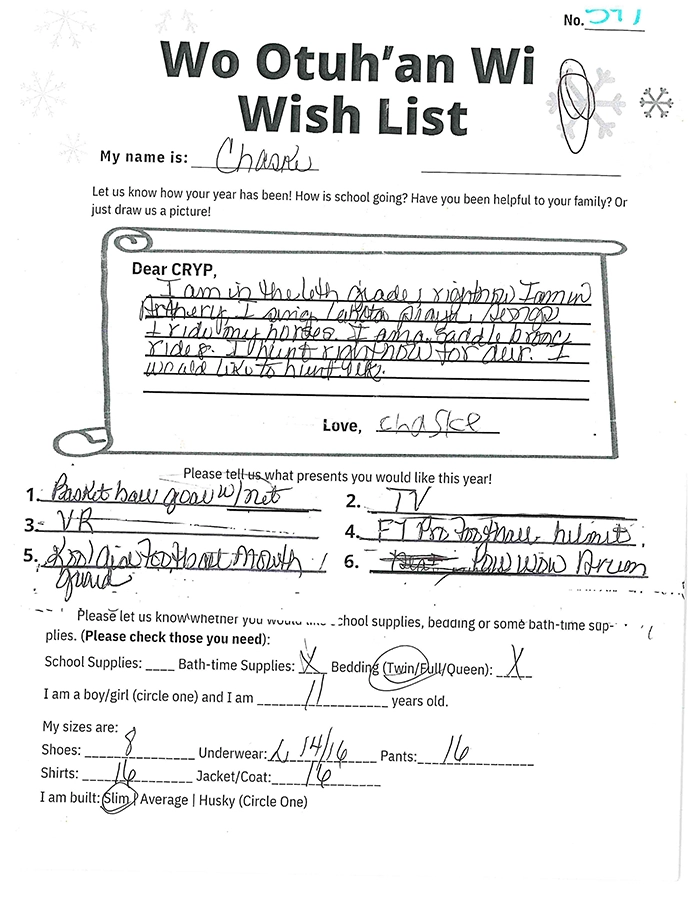 No. 591
Wo Otuh'an Wi
Wish List
My name is: Chaske
Let us know how your year has been! How is school going? Have you been helpful to your family? Or
just draw us a picture!
Dear CRYP,
I am in the 6th grade, right now I am in
Archery, I sing Lakota songs
I ride my horses. I am a saddle bronc
rider. I hunt right now for deer. I
would like to hunt elk.
Love, chaske
Please tell us what presents you would like this year!
1. Basket ball goal w/ net
2. TV
3. VR
4. FT Pro Football helmit
5. Kool Aid Football Mouth
guard
6. Pow wow Drum
Please let us know whether you would like school supplies, bedding or some bath-time sup-
plies. (Please check those you need):
School Supplies: ____ Bath-time Supplies: X Bedding (Twin/Full/Queen): X
I am a boy/girl (circle one) and I am 11 years old.
My sizes are:
Shoes: 8 Underwear: L 14/16 Pants: 16
Shirts: 16 Jacket/Coat: 16
I am built: Slim | Average | Husky (Circle One)